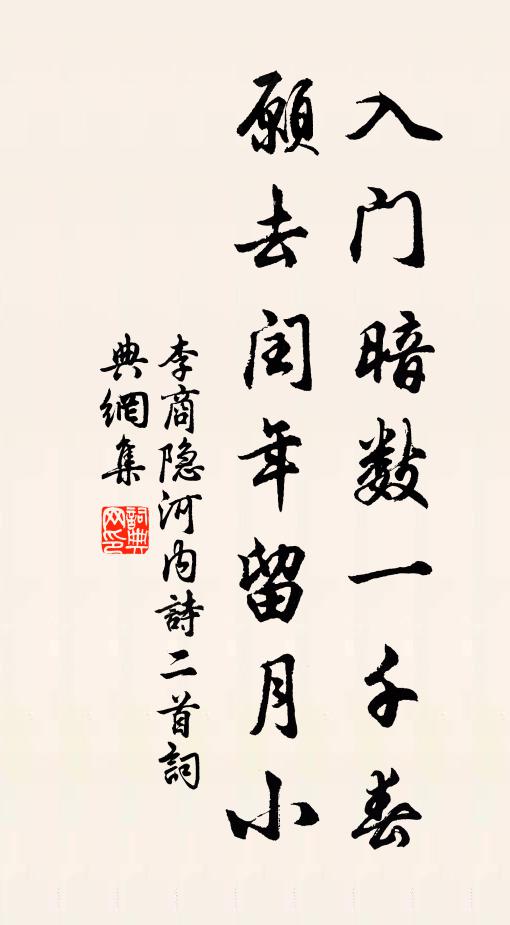 入门暗数一千春
願去闰年留月小
李商隐河内詩二首詞
典網集
詞典
网印